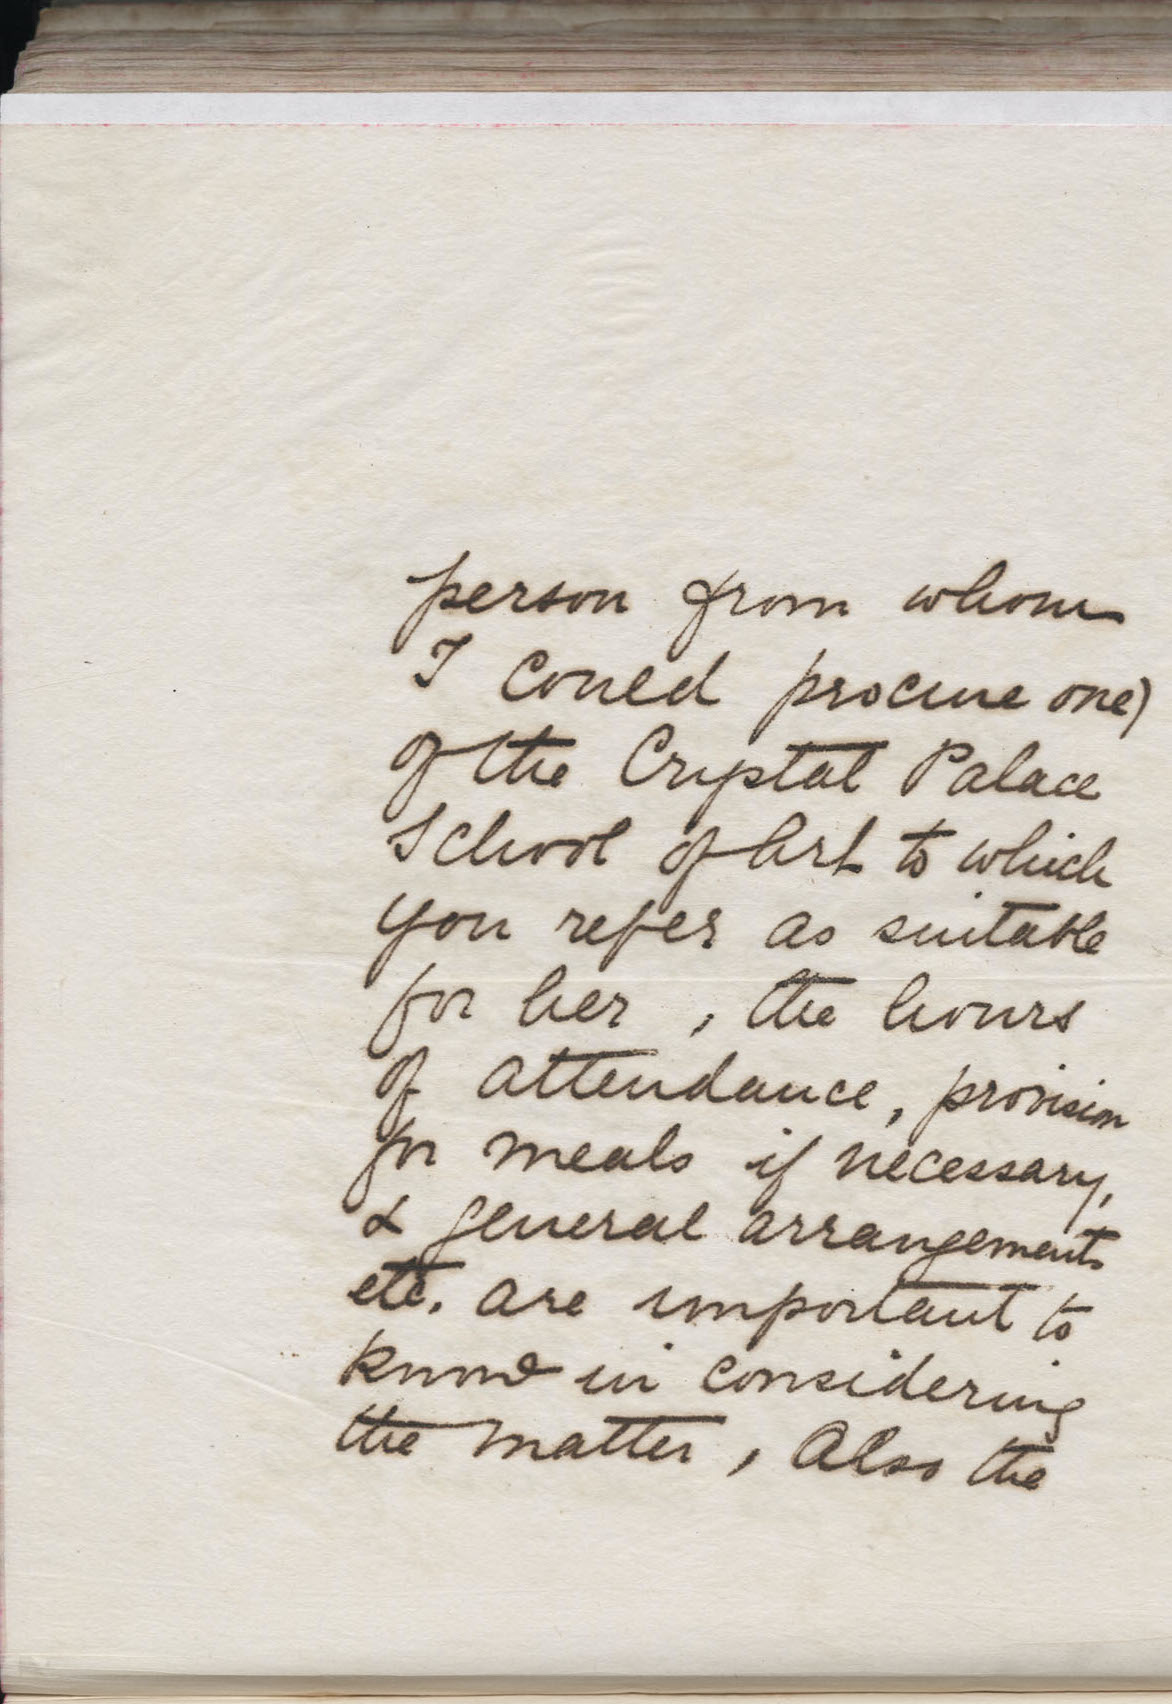 person from whom
I could procure one)
of the Crystal Palace
School of Art to which
you refer as suitable
for her, the hours
of attendance, provision
for meals if necessary,
& general arrangements
etc. are important to
know in considering
the matter, Also the